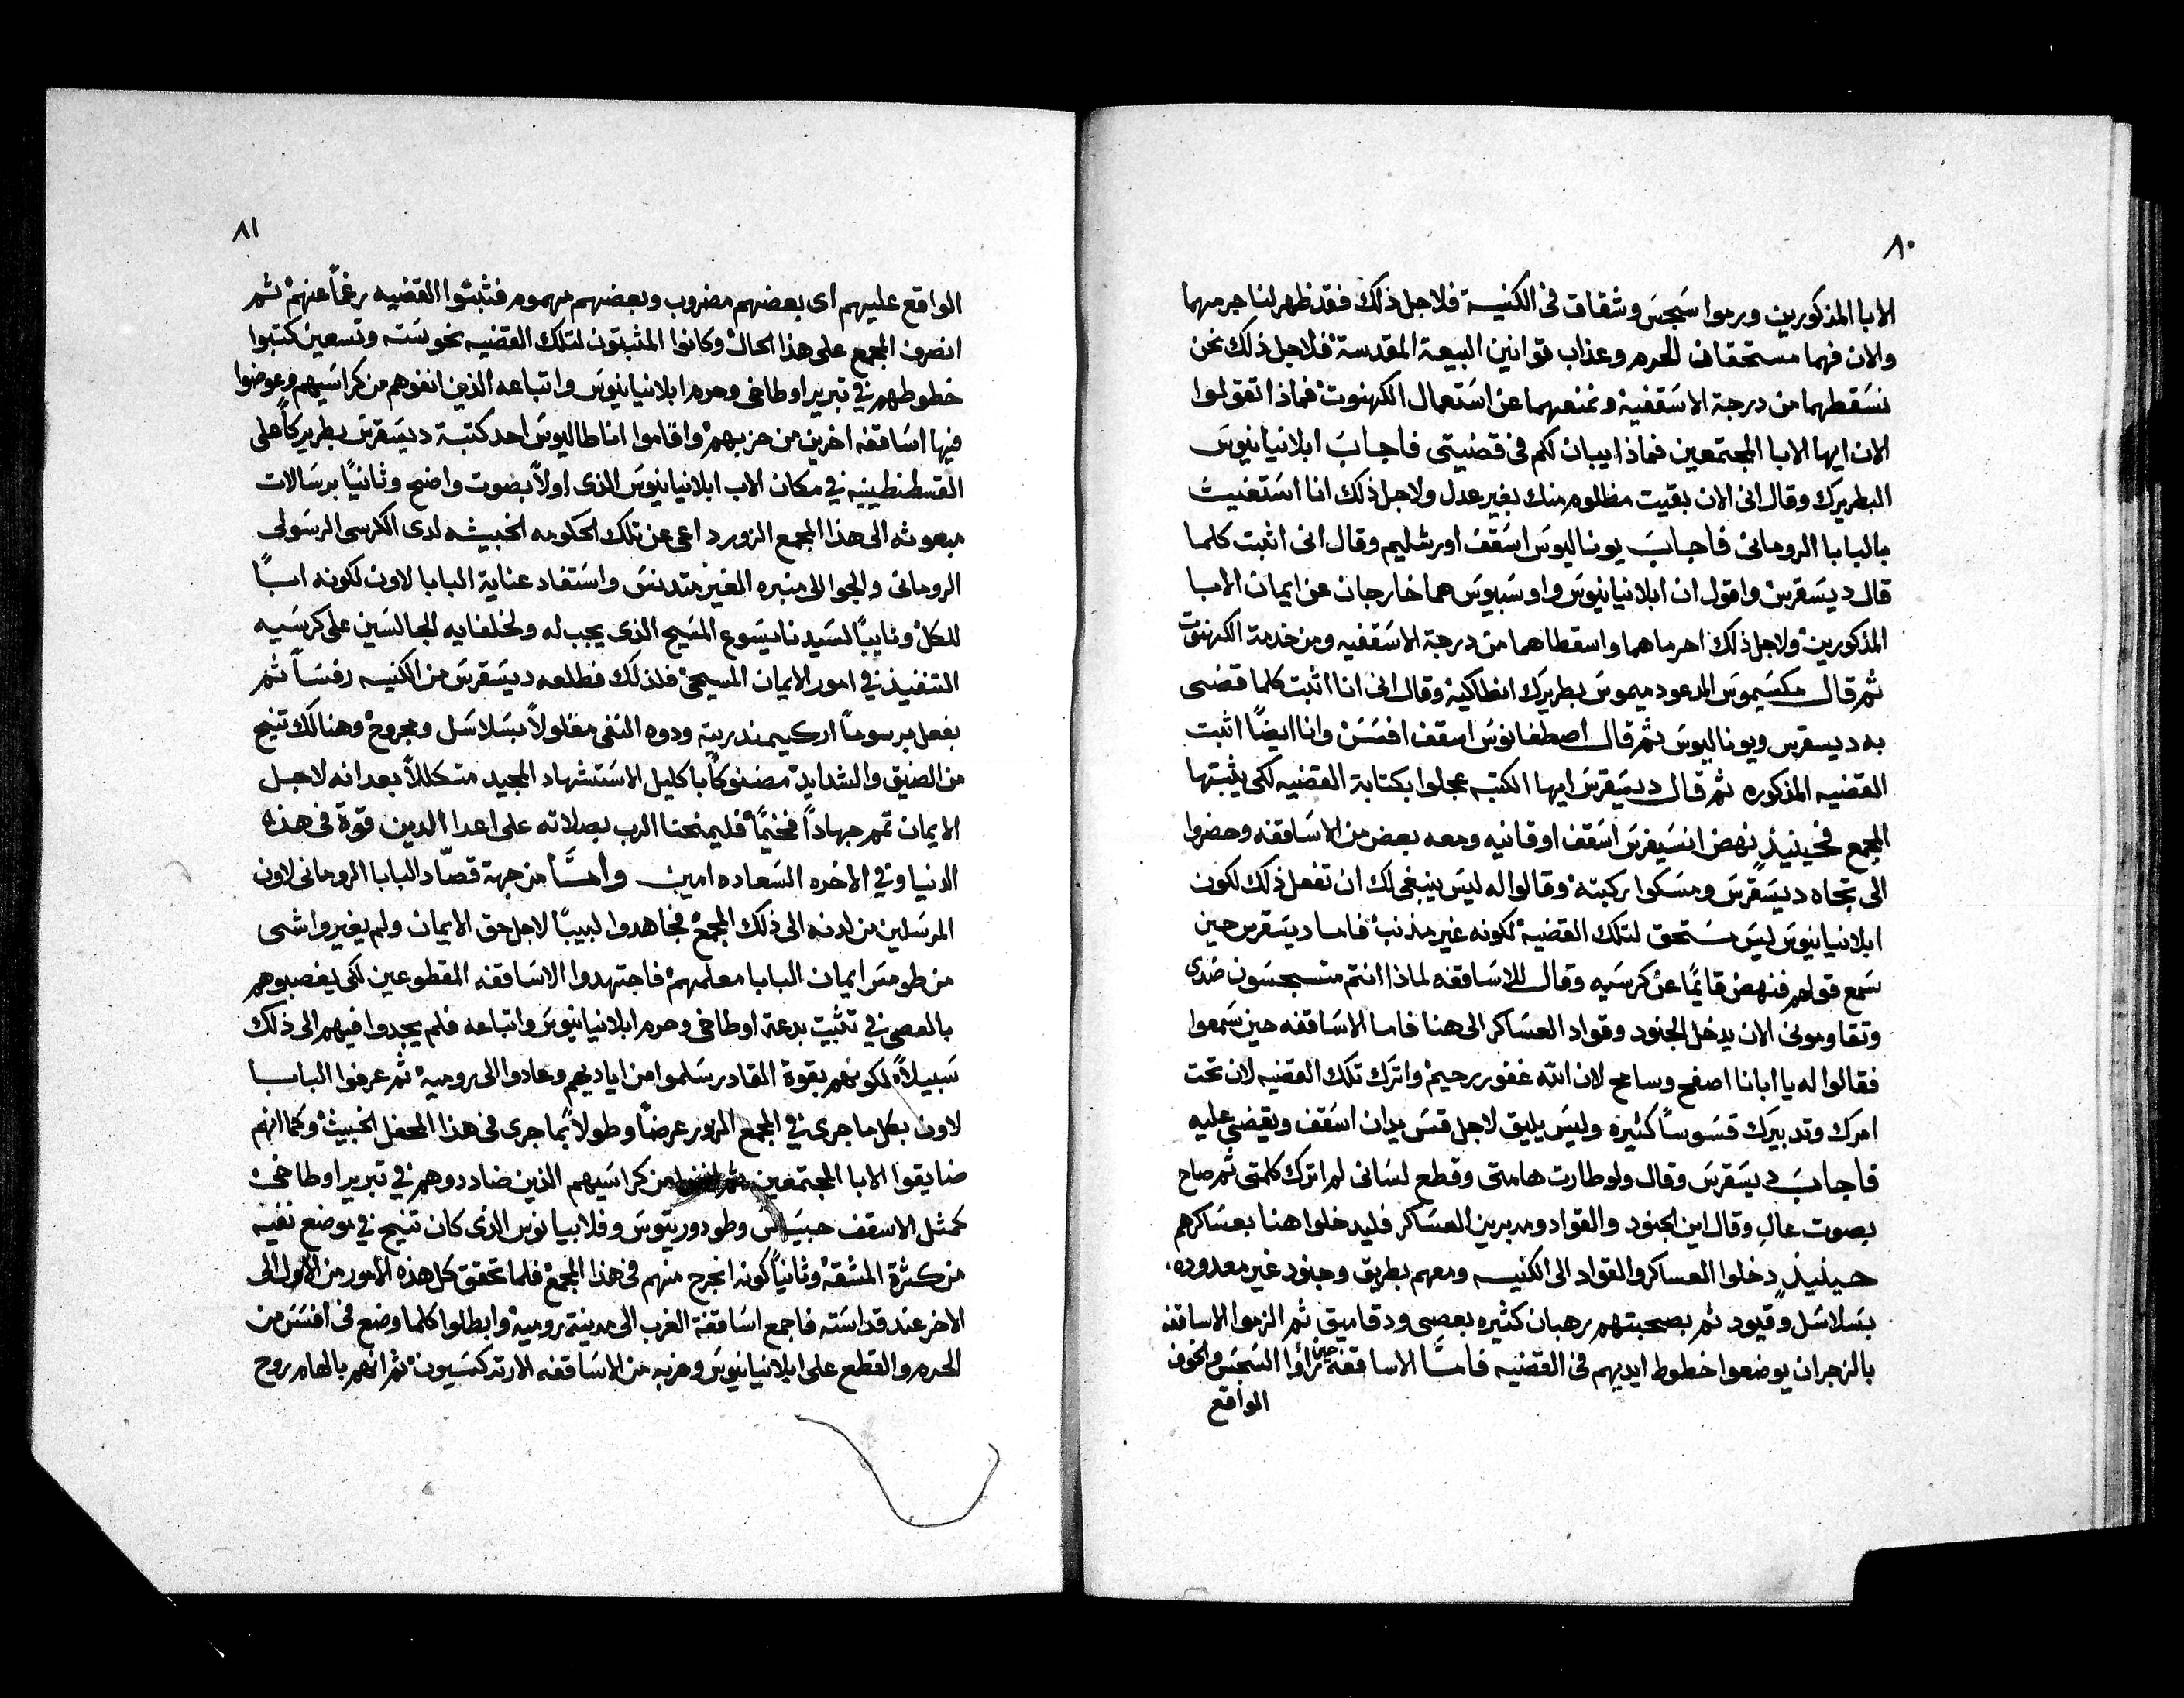 ٨٠
الابا المذكورين ورموا سَجسَ وشقاق فى الكنيسة فلاجل ذلك فقد ظهر لنا جرمهما
والان فهما مستحقان للحرم وعذاب قوانين البيعة المقدسة فلاجل ذلك نحن
نسَقطهما من درجة الاسَقفية ونمنعهما عن اسَتعمال الكهنوت فماذا تقولوا
الان ايها الابا المجتمعين فماذا يبان لكم فى قضيتى فاجابَ ابلانيانيوسَ
البطريرك وقال انى الان بقيت مظلوم منك بغير عدل ولاجل ذلك انا اسَتغيث
بالبابا الرومانى فاجابَ يوناليوسَ اسَقف اورشليم وقال انى اثبت كلما
قال ديسَقرس واقول ان ابلانيانيوسَ واوسَبيوسَ هما خارجان عن ايمان الابا
المذكورين ولاجل ذلك احرماهما واسقطاهما من درجة الاسَقفيه ومن خدمة الكهنوت
ثم قال مكسَيموسَ المدعود ميموسَ بطريرك انطاكية وقال انى انا اثبت كلما قضى
به ديسقرس ويوناليوسَ ثم قال اصطفانوسَ اسقف افسَسَ وانا ايضًا اثبت
القضيه المذكوره ثم قال ديسَقرسَ ايها الكتبه عجلوا بكتابة القضيه لكى يثبتها
المجمع فحينيذٍ نهض انسَيفرسَ اسَقف اوقانيه ومعه بعض من الاسَاقفه وحضروا
الى تجاه ديسَقرسَ ومسَكوا بركبته وقالوا له ليسَ ينبغى لك ان تفعل ذلك لكون
ابلانيانيوسَ ليسَ مسَتحق لتلك القضية لكونه غير مذنب فاما ديسَقرس حين
سَمع قولهم فنهض قايمًا عن كرسَيه وقال للاسَاقفه لماذا انتم متسجسَون ضدى
وتقاومونى الان يدخل الجنود وقواد العسَاكر الى هنا فاما الاسَاقفه حين سَمعوا
فقالوا له يا ابانا اصفح وسامح لان الله غفور رحيم واترك تلك القضيه لان تحت
امرك وتدبيرك قسَوسًا كثيره وليسَ يليق لاجل قسَ يدان اسَقف ويقضى عليه
فاجابَ ديسَقرسَ وقال ولو طارت هامتى وقطع لسَانى لم اترك كلمتى ثم صاح
بصوت عالٍ وقال اين الجنود والقواد ومدبرين العسَاكر فليدخلوا هنا بعسَاكرهم
حينيذٍ دخلوا العساكر والقواد الى الكنيسه ومعهم بطريق وجنود غير معدوده
بسَلاسَل وقيود ثم بصحبتهم رهبان كثيره بعصى ودقاميق ثم الزموا الاساقفه
بالزجر ان يوضعوا خطوط ايديهم فى القضيه فامَّا الاساقفه حين راؤا السَجسَ والخوف
الواقع
٨١
الواقع عليهم اى بعضهم مضروب وبعضهم مهموم فثبتوا القضيه رغمًا عنهم ثم
انصرف المجمع على هذا الحال وكانوا المثبتون لتلك القضيه نحو سَته وتسعين كتبوا
خطوطهم فى تبرير اوطاخى وحرم ابلانيانيوسَ واتباعه الذين انفوهم من كراسَيهم وعوضوا
فيها اسَاقفه اخرين من حزبهم واقاموا اناطاليوسَ احد كتبة ديسَقرسَ بطريركًا على
القسطنطينيه فى مكان الاب ابلانيانيوسَ الذى اولاً بصوت واضح وثانيًا برسَالات
مبعوثه الى هذا المجمع الزور داعى عن تلك الحكومه الخبيثه لدى الكرسى الرسَولى
الرومانى والجوا الى منبره الغير متدنسَ واسَتفاد عناية البابا لاون لكونه ابًا
للكل ونايبًا لسَيدنا يسَوع المسَيح الذى يجب له ولخلفايه الجالسَين على كرسَيه
التنفيذ فى امور الايمان المسيحى فلذلك فطلعه ديسَقرسَ من الكنيسه رفسَاً ثم
بفعل برسوماً اركيمندريته ودوه النفى مغلولاً بسَلاسَل ومجروح وهنالك تنيح
من الضيق والشدايد مضنوكًا باكليل الاسَتشهاد المجيد متكللاً بعد انه لاجل
الايمان تمم جهاداً فخيمًا فليمنحنا الرب بصلاته على اعدا الدين قوة فى هذه
الدنيا وفى الاخره السَعاده امين وامَّا من جهة قصّاد البابا الرومانى لاون
المرسَلين من لدنه الى ذلك المجمع فجاهدوا لبيبًا لاجل حق الايمان ولم يغيروا شى
من طومسَ ايمان البابا معلمهم فاجتهدوا الاسَاقفه المقطوعين لكى يغصبوهم
بالعصى فى تثبيت بدعة اوطاخى وحرم ابلانيانيوسَ واتباعه فلم يجدوا فيهم الى ذلك
سَبيلاً لكونهم بقوة القادر سَلموا من اياديهم وعادوا الى روميه ثم عرفوا البابا
لاون بكل ما جرى فى المجمع الزور عرضاً وطولاً بما جرى فى هذا المحفل الخبيث وكما انهم
ضايقوا الابا المجتمعين من كراسَيهم الذين ضاددوهم فى تبرير اوطاخى
كمثل الاسقف وطودوريتوسَ وفلابيانوس الذى كان تنيح فى موضع نفيه
من كثرة المشقة وثانيًا كونه انجرح منهم فى هذا المجمع فلما تحقق كل هذه الامور من الاول الى
الاخر عند قداسَته فاجمع اسَاقفة الغرب الى مدينة روميه وابطلوا كلما وضع فى افسَسَ من
الحرم والقطع على ابلانيانيوسَ وحزبه من الاسَاقفه الارتدكسَيون ثم انهم بالهام روح